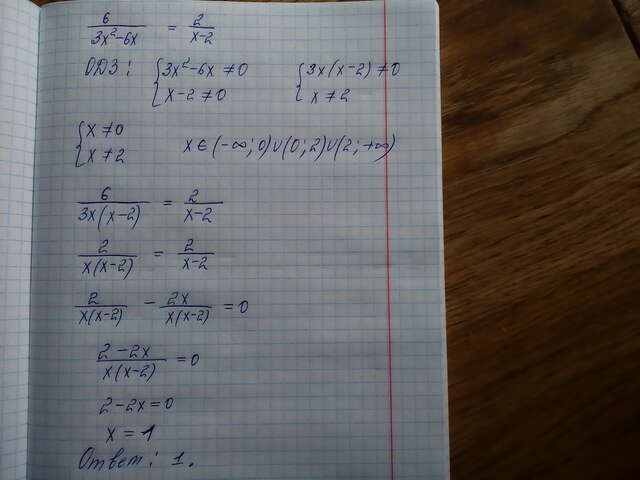 6/(3x²-6x) = 2/(x-2)
ОДЗ: {3x²-6x ≠ 0 {3x(x-2) ≠ 0
x-2 ≠ 0 x ≠ 2
{x ≠ 0
x ≠ 2 x ∈ (-∞; 0) ∪ (0; 2) ∪ (2; +∞)
6/(3x(x-2)) = 2/(x-2)
2/(x(x-2)) = 2/(x-2)
2/(x(x-2)) - 2x/(x(x-2)) = 0
(2-2x)/(x(x-2)) = 0
2-2x=0
x = 1
Ответ: 1.